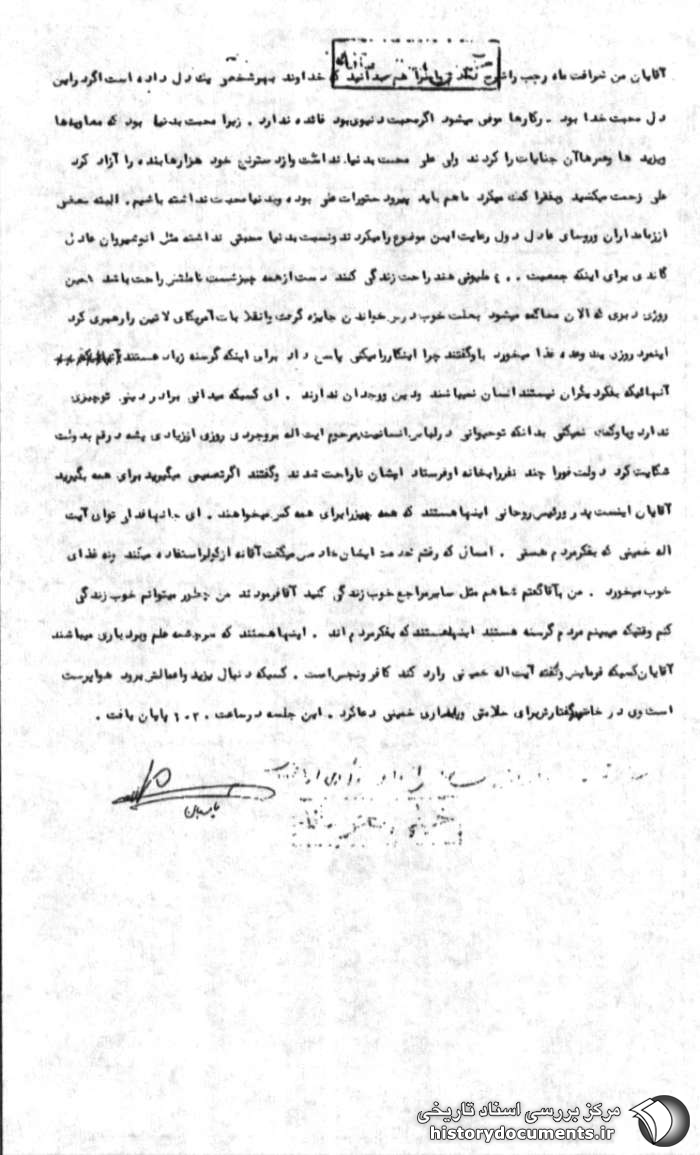 آقایان من شرافت ماه رجب را شرح هم میدانید که خداوند بهر شخص یک دل داده است اگر در این
دل محبت خدا بود . در کارها موفق میشود اگر محبت دنیوی بود فائده ندارد . زیرا محبت بدنیا بود که معاویه‌ها
ویزید ها و عمرها آن جنایات را کردند ولی علی محبت بدنیا نداشت و از دسترنج خود هزارها بنده را آزاد کرد
علی زحمت میکشید و بفقرا کمک میکرد ما هم باید پیرو دستورات علی بوده و بدنیا محبت نداشته باشیم . البته بعضی
از زمامداران و روسای عادل دول رعایت این موضوع را میکردند و نسبت بدنیا محبتی نداشته مثل انوشیروان عادل
گاندی برای اینکه جمعیت ۴۰۰ ملیونی هند راحت زندگی کنند دست از همه چیز شست تا ملتش راحت باشد همین
روژی دبوی که الان محاکمه میشود بعلت خوب درس خواندن جایزه گرفت و انقلابات آمریکای لاتین را رهبری کرد
اینمرد روزی یک وعده غذا میخورد باو گفتند چرا اینکار را میکنی پاسخ داد برای اینکه گرسنه زیاد هستند
آنهائیکه بفکر دیگران نیستند انسان نمیباشند و دین و وجدان ندارند . ای کسیکه میدانی برادر دینی تو چیزی
ندارد و باو کمک نمیکنی بدانکه تو حیوانی در لباس انسانیت مرحوم ایت اله بروجردی روزی از زیادی پشه در قم بدولت
شکایت کرد دولت فورا چند نفر را بخانه او فرستاد ایشان ناراحت شدند و گفتند اگر تصمیمی میگیرید برای همه بگیرید
آقایان اینست پدر و رئیس روحانی اینها هستند که همه چیز را برای همه کس میخواهند . ای جانها فدای توای آیت
اله خمینی که بفکر مردم هستی . امسال که رفتم خدمت ایشان خادمش میگفت آقا نه از کولر استفاده میکند و نه غذای
خوب میخورد . من بآقا گفتم شما هم مثل سایر مراجع خوب زندگی کنید آقا فرمودند من چطور میتوانم خوب زندگی
کنم وقتیکه میبینم مردم گرسنه هستند اینها هستند که بفکر مردم اند . اینها هستند که سرچشمه علم و بردباری میباشند
آقایان کسیکه فرمایش و گفته آیت اله خمینی را رد کند کافر و نجس است . کسیکه دنبال یزید و اعمالش برود هواپرست
است وی در خاتمه گفتارش برای سلامتی و پایداری خمینی دعا کرد . این جلسه در ساعت ۱۰۲۰ پایان یافت .
مرکز بررسی اسناد تاریخی
historydocuments.ir